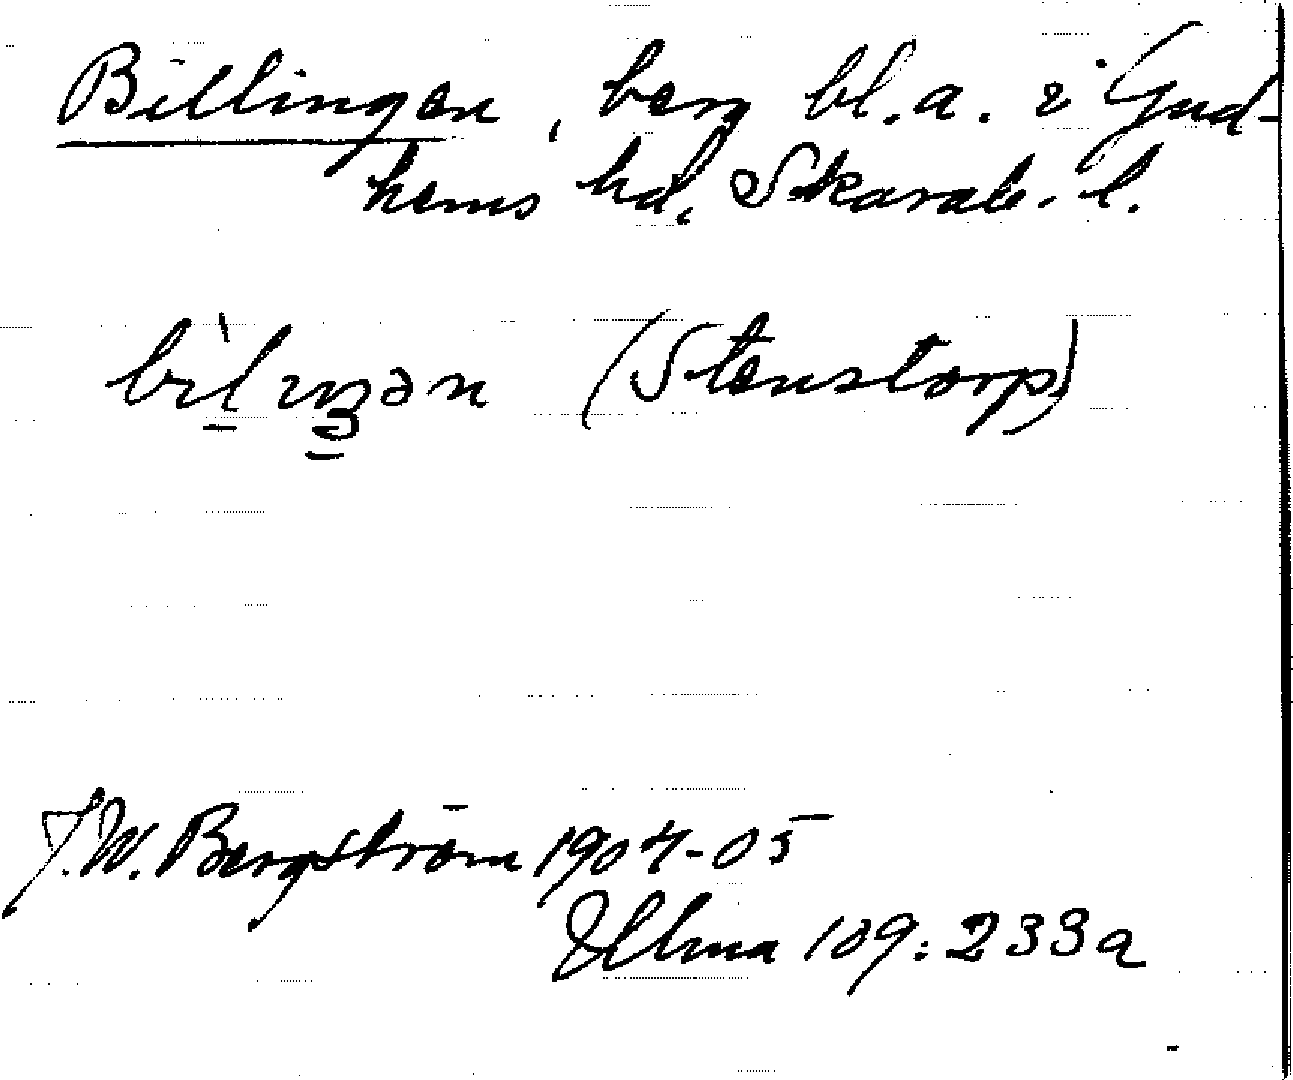 Billingen, berg bl.a. i Gud-
hems hd, Skarab. l.
(Stenstorp)
J.W. Bergström 1904-05
Ulma 109:233a